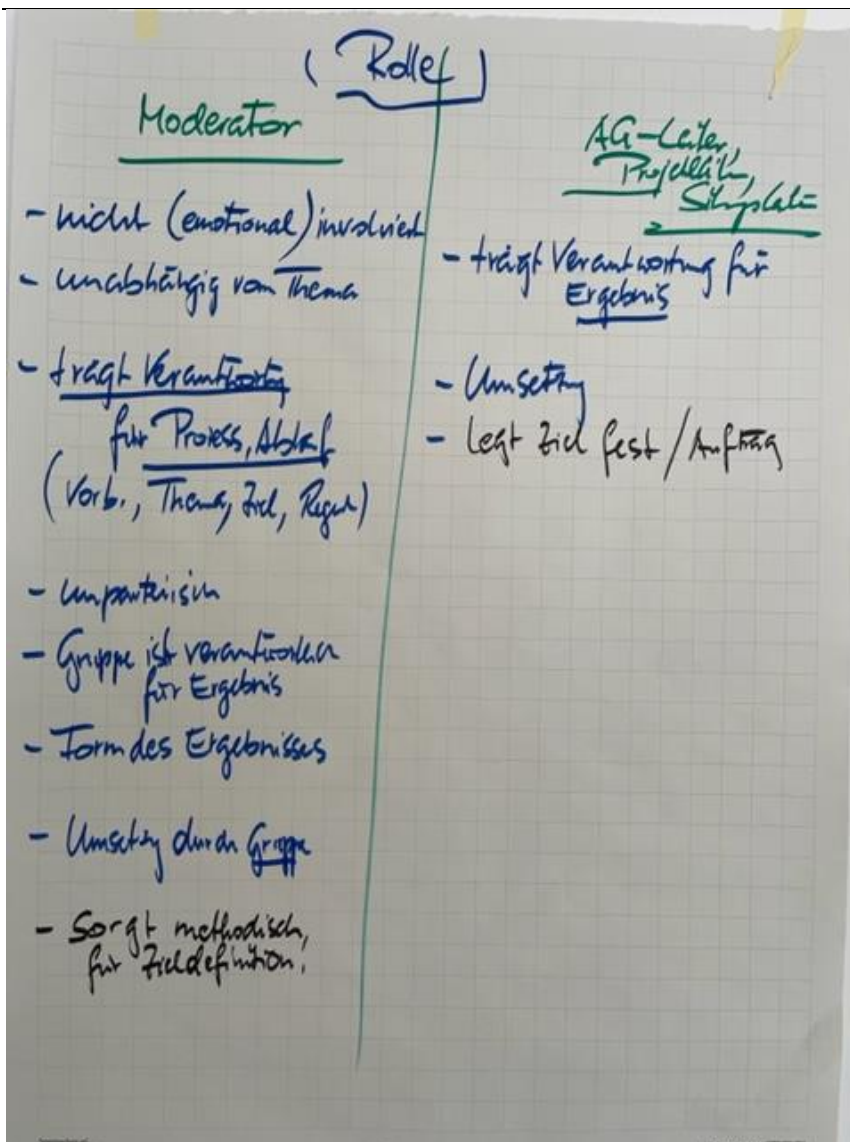 (Rolle)
Moderator
- nicht (emotional) involviert
- unabhängig vom Thema
- trägt Verantwortung
für Prozess, Ablauf
(Vorb., Thema, Ziel, Regeln)
- unparteiisch
- Gruppe ist verantwortlich
für Ergebnis
- Form des Ergebnisses
- Umsetzung durch Gruppe
- Sorgt methodisch,
für Zieldefinition.
AG-Leiter,
Projektleit.,
- trägt Verantwortung für
Ergebnis
- Umsetzung
- Legt Ziel fest / Auftrag